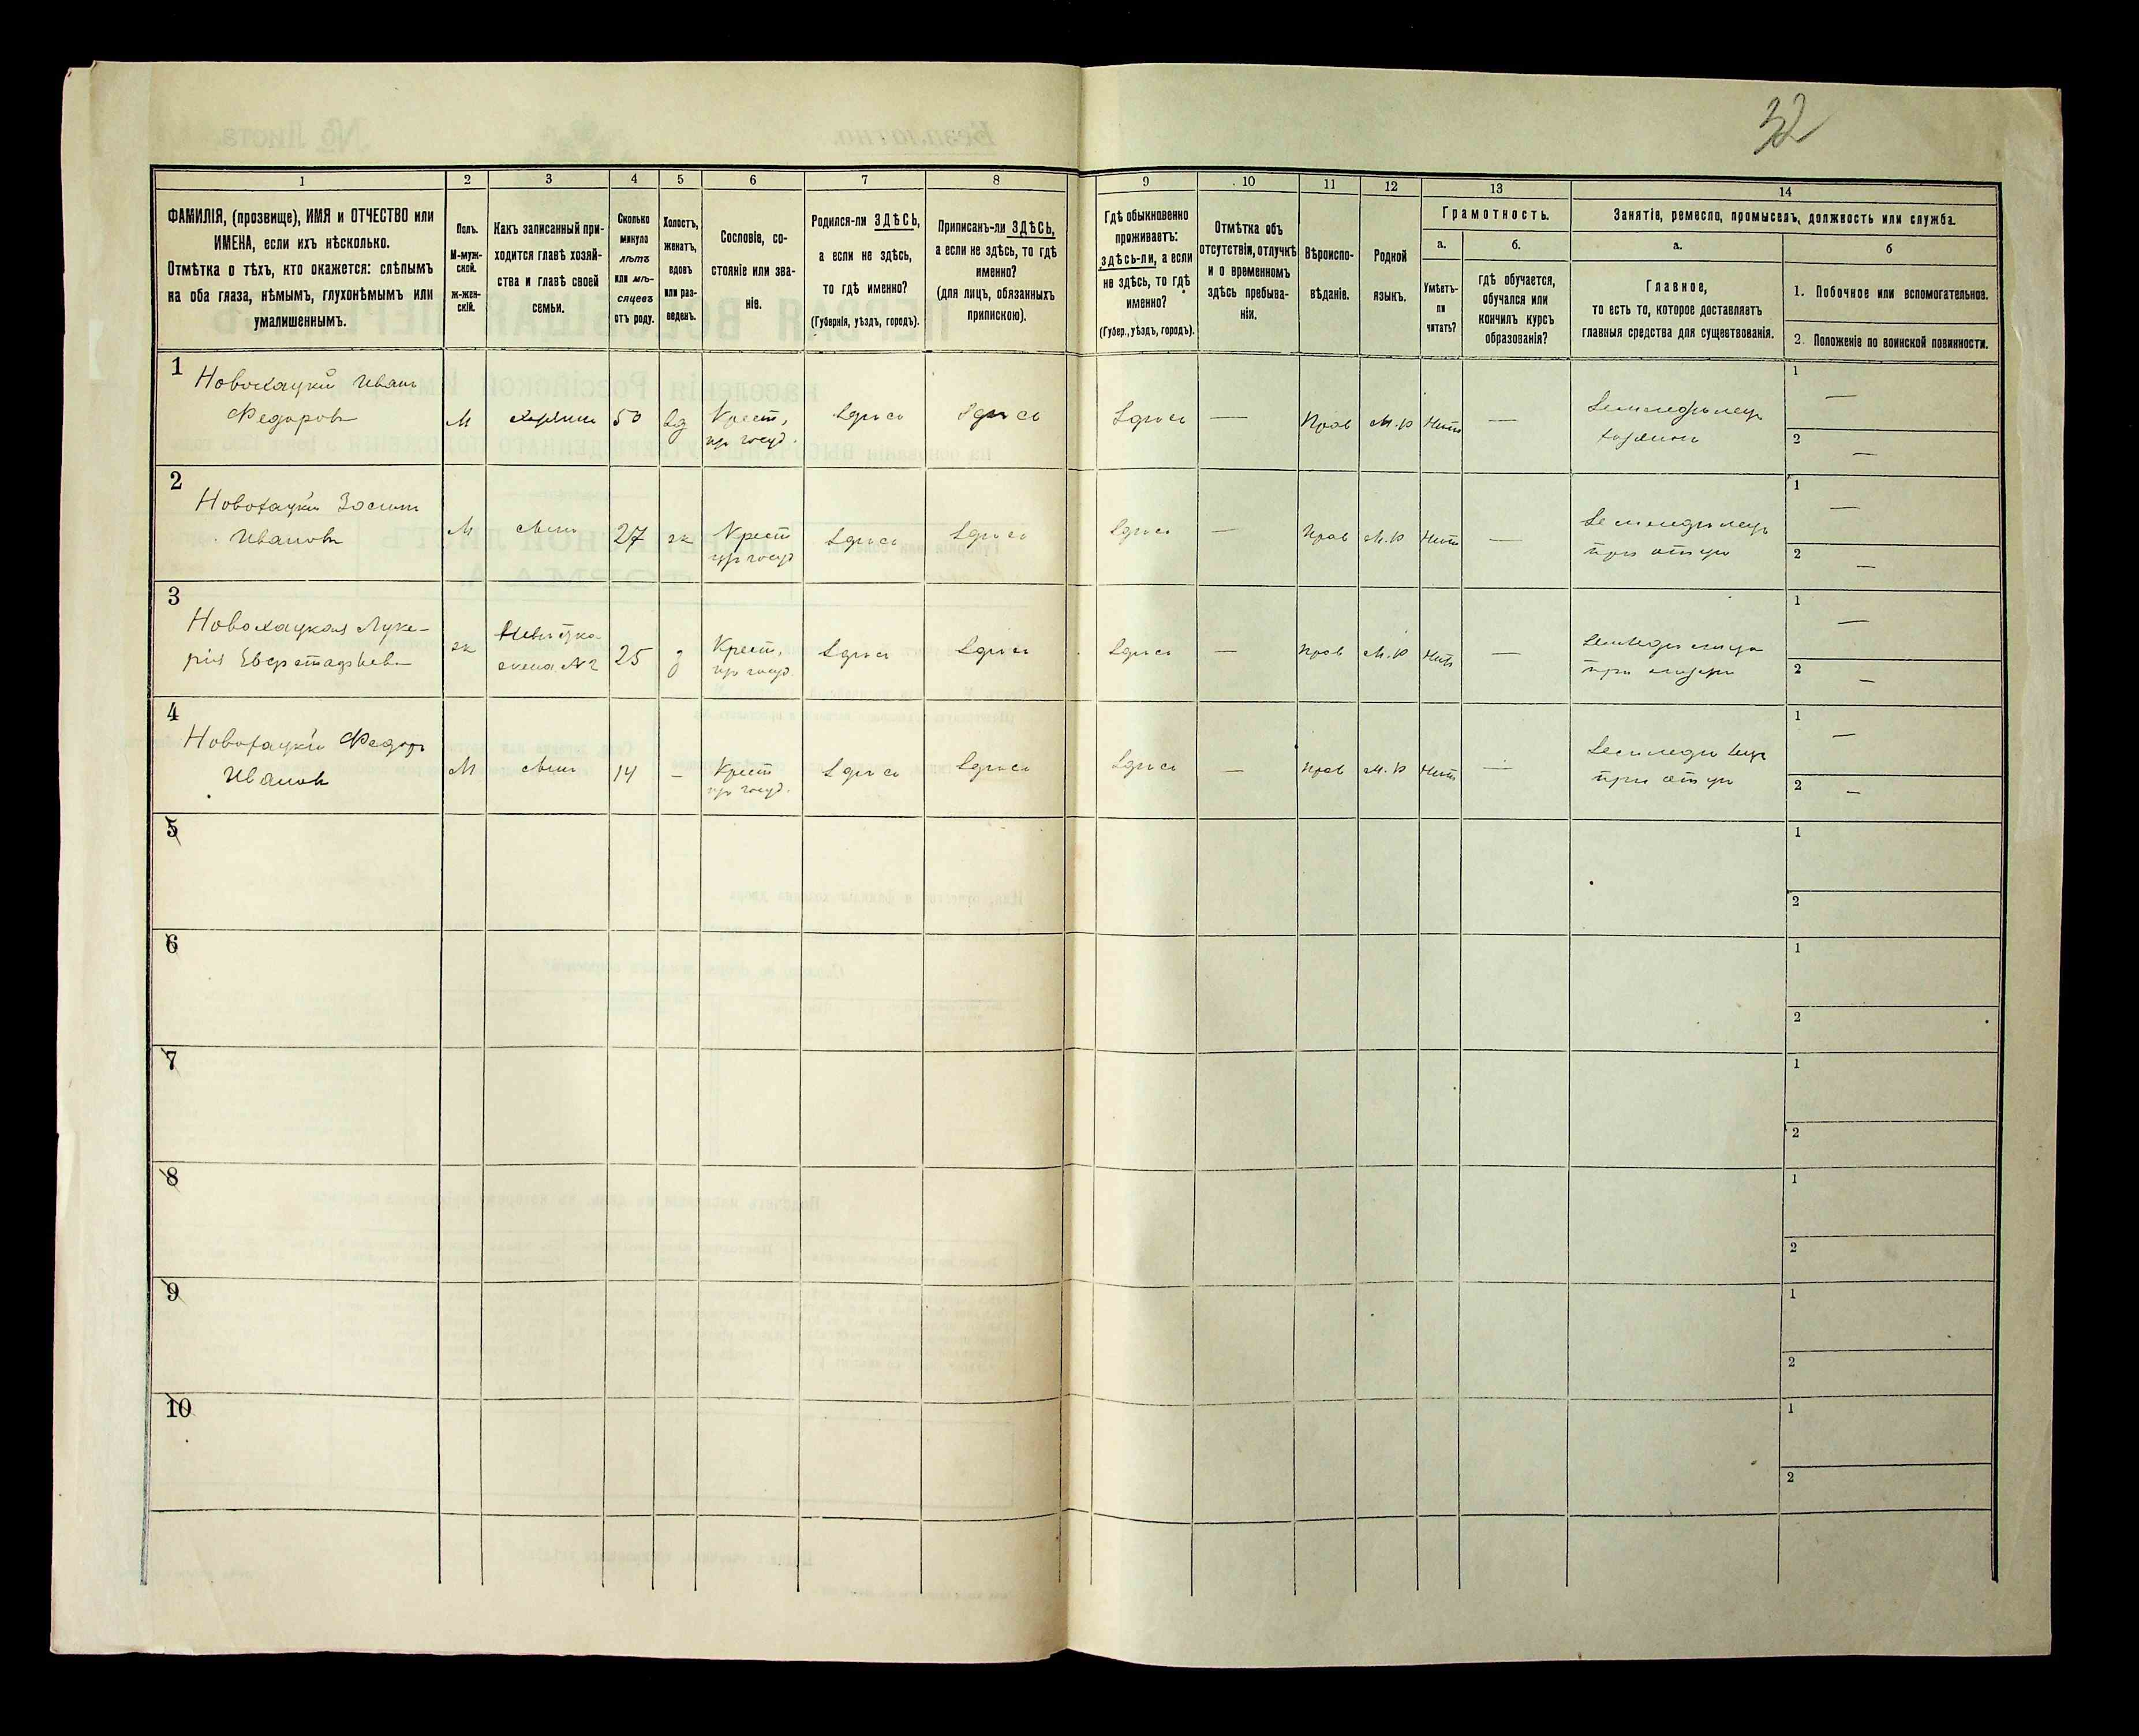 32
1 2 3 4 5 6 7 8 9 10 11 12 13 14
ФАМИЛІЯ, (прозвище), ИМЯ и ОТЧЕСТВО или
ИМЕНА, если ихъ нѣсколько.
Отмѣтка о тѣхъ, кто окажется: слѣпымъ
на оба глаза, нѣмымъ, глухонѣмымъ или
умалишеннымъ.
Полъ.
М-муж-
ской.
ж-жен-
скій.
Какъ записанный при-
ходится главѣ хозяй-
ства и главѣ своей
семьи.
Сколько
минуло
лѣтъ
или мѣ-
сяцевъ
отъ роду.
Холостъ,
женатъ,
вдовъ
или раз-
веденъ.
Сословіе, со-
стояніе или зва-
ніе.
Родился-ли ЗДѢСЬ,
а если не здѣсь,
то гдѣ именно?
(Губернія, уѣздъ, городъ).
Приписанъ-ли ЗДѢСЬ,
а если не здѣсь, то гдѣ
именно?
(для лицъ, обязанныхъ
припискою).
Гдѣ обыкновенно
проживаетъ:
здѣсь-ли, а если
не здѣсь, то гдѣ
именно?
(Губер., уѣздъ, городъ).
Отмѣтка объ
отсутствіи, отлучкѣ
и о временномъ
здѣсь пребыва-
ніи.
Вѣроиспо-
вѣданіе.
Родной
языкъ.
Грамотность.
а.
Умѣетъ-
ли
читать?
б.
гдѣ обучается,
обучался или
кончилъ курсъ
образованія?
Занятіе, ремесло, промыселъ, должность или служба.
а.
Главное,
то есть то, которое доставляетъ
главныя средства для существованія.
б
1. Побочное или вспомогательное.
2. Положеніе по воинской повинности.
1
Новохацкій Иванъ
Федоровъ
М
хозяинъ
50
вд
Крест,
пр госуд.
Здѣсь
Здѣсь
Здѣсь
—
Прав
М.Р
Нѣтъ
—
Земледѣлецъ
хозяинъ
1 —
2 —
2
Новохацкій Зосимъ
Ивановъ
М
сынъ
27
ж
Крест
пр госуд
Здѣсь
Здѣсь
Здѣсь
—
Прав
М.Р
Нѣтъ
—
Земледѣлецъ
при отцѣ
1 —
2 —
3
Новохацкая Луке-
рія
ж
Невѣстка
жена №2
25
з
Крест,
пр госуд.
Здѣсь
Здѣсь
Здѣсь
—
Прав
М.Р
Нѣтъ
—
при
1 —
2 —
4
Новохацкій Федоръ
Ивановъ
М
сынъ
14
–
Крест
пр госуд.
Здѣсь
Здѣсь
Здѣсь
—
Прав
М.Р
Нѣтъ
—
Земледѣлецъ
при отцѣ
1 —
2 —
5
1
2
6
1
2
7
1
2
8
1
2
9
1
2
10
1
2